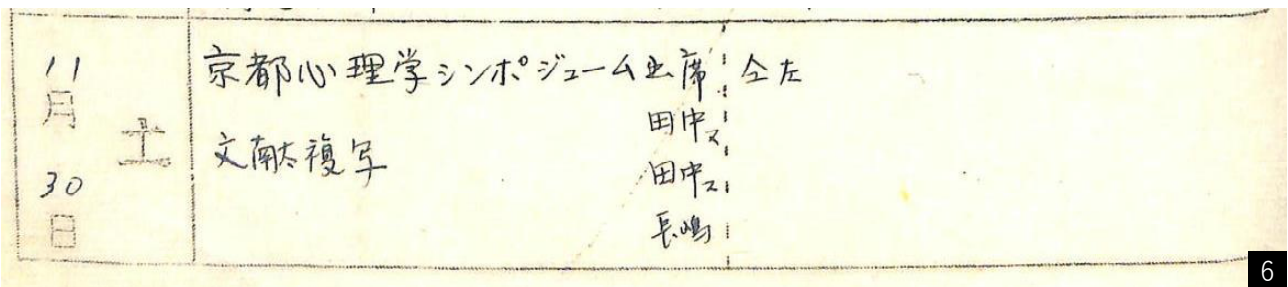 11月30日
土
京都心理学シンポジューム出席 仝左
田中ヌ
文献複写
田中ス
長嶋
6